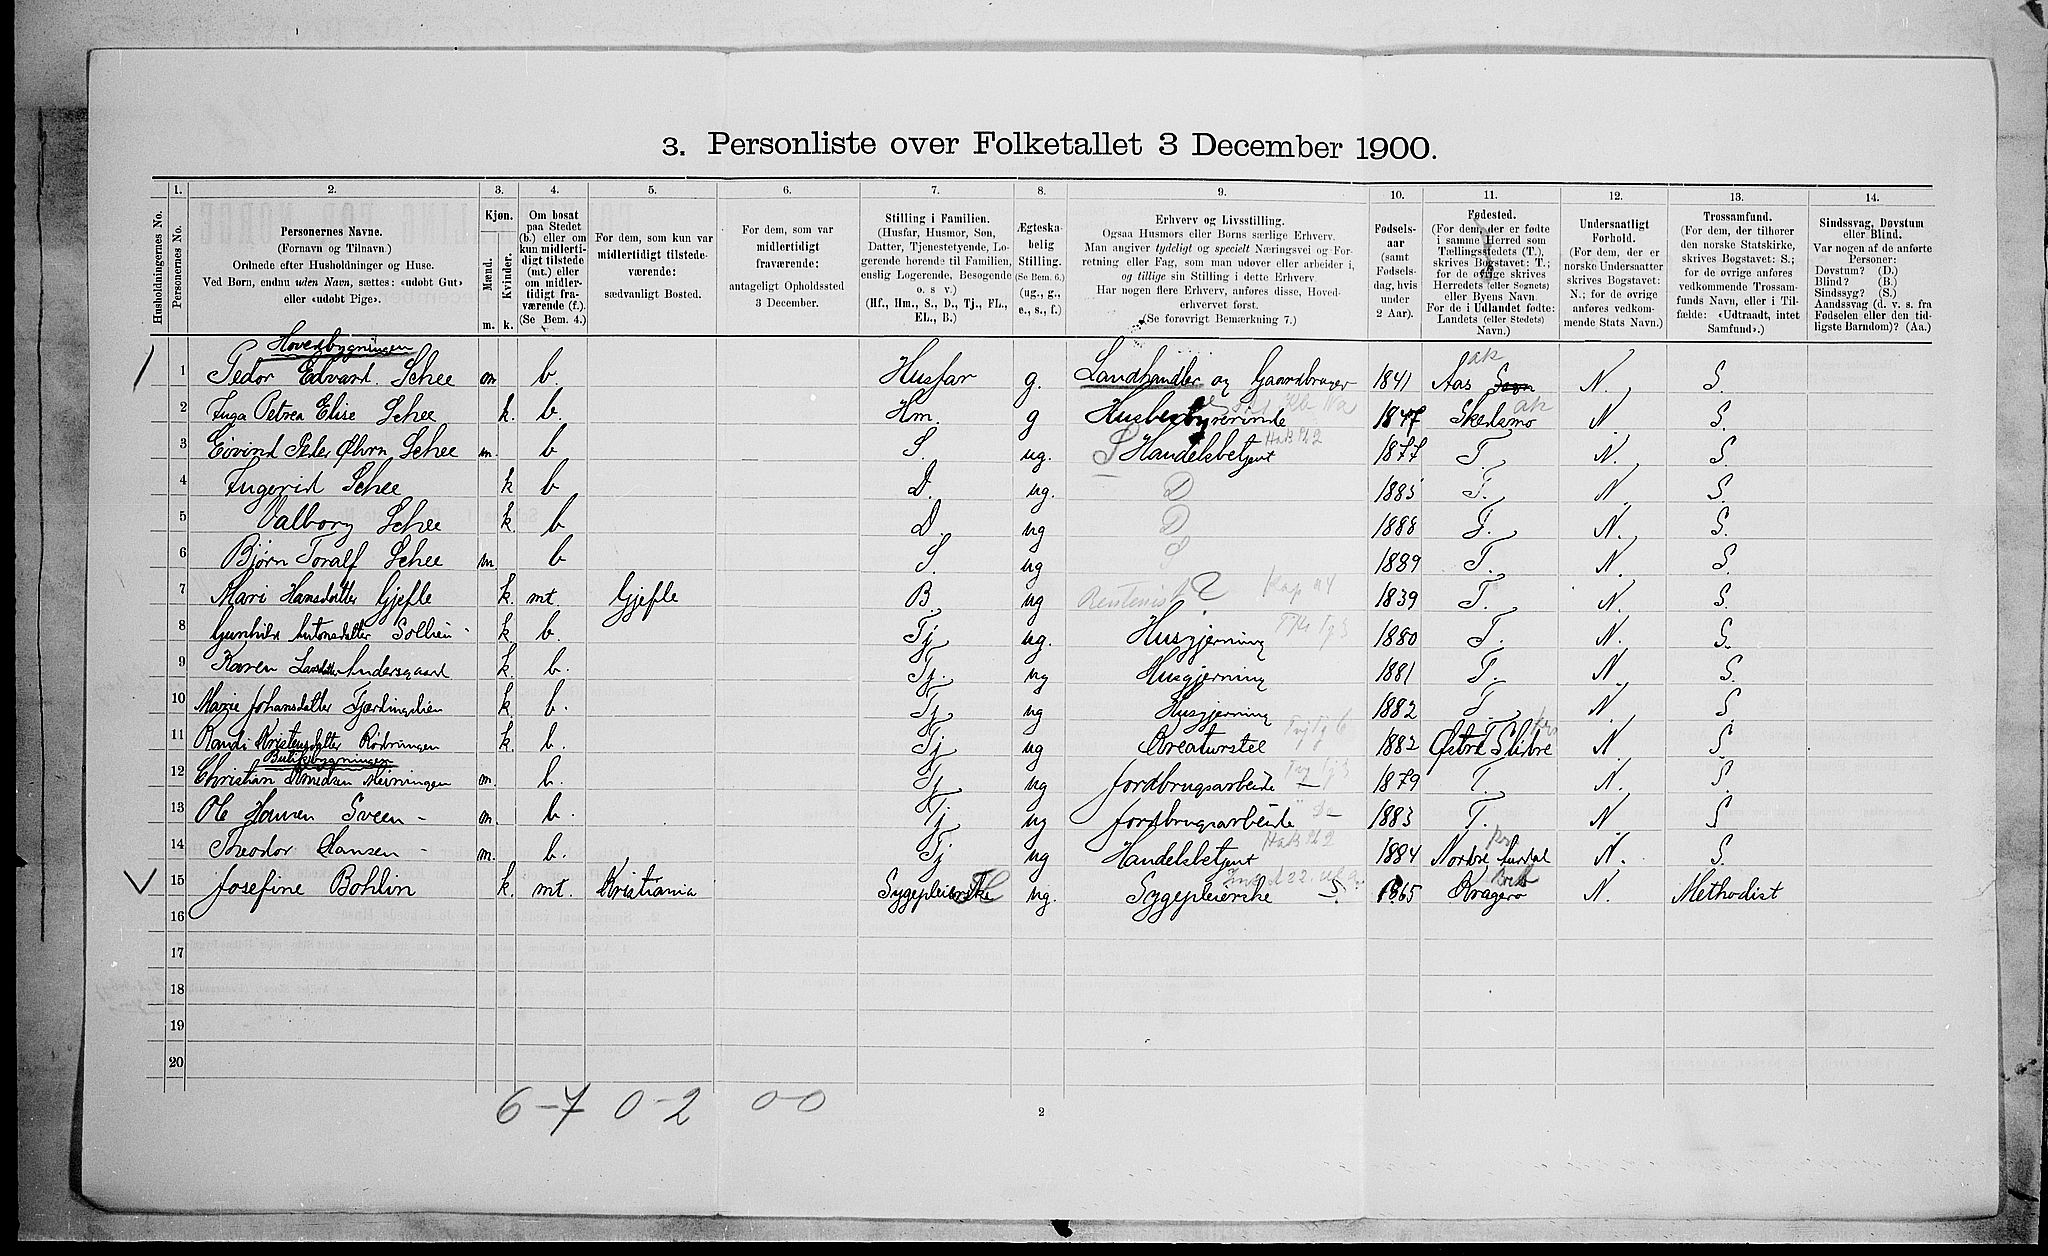 3. Personliste over Folketallet 3 December 1900.
1. 2. 3. 4. 5. 6. 7. 8. 9. 10. 11. 12. 13. 14.
Husholdningernes No.
Personernes No.
Personernes Navne.
(Fornavn og Tilnavn.)
Ordnede efter Husholdninger og Huse.
Ved Børn, endnu uden Navn, sættes: «udøbt Gut»
eller «udøbt Pige».
Kjøn.
Mænd.
Kvinder.
m. k.
Om bosat
paa Stedet
(b.) eller om
kun midlerti-
digt tilstede
(mt.) eller
om midler-
tidigt fra-
værende (f.).
(Se Bem. 4.)
For dem, som kun var
midlertidigt tilstede-
værende:
sædvanligt Bosted.
For dem, som var
midlertidigt
fraværende:
antageligt Opholdssted
3 December.
Stilling i Familien.
(Husfar, Husmor, Søn,
Datter, Tjenestetyende, Lo-
gerende hørende til Familien,
enslig Logerende, Besøgende
o. s v.)
(Hf., Hm., S., D., Tj., FL.,
EL., B.)
Ægteska-
belig
Stilling.
(Se Bem. 6.)
(ug., g.,
e., s., f.)
Erhverv og Livsstilling.
Ogsaa Husmors eller Børns særlige Erhverv.
Man angiver tydeligt og specielt Næringsvei og For-
retning eller Fag, som man udøver eller arbeider i,
og tillige sin Stilling i dette Erhverv
Har nogen flere Erhverv, anføres disse, Hoved-
erhvervet først.
(Se forøvrigt Bemærkning 7.)
Fødsels-
aar
(samt
Fødsels-
dag, hvis
under
2 Aar).
Fødested.
(For dem, der er fødte
i samme Herred som
Tællingsstedets (T.),
skrives Bogstavet: T.;
for de øvrige skrives
Herredets (eller Sognets)
eller Byens Navn.
For de i Udlandet fødte:
Landets (eller Stedets)
Navn.)
Undersaatligt
Forhold.
(For dem, der er
norske Undersaatter
skrives Bogstavet:
N.; for de øvrige
anføres vedkom-
mende Stats Navn.)
Trossamfund.
(For dem, der tilhører
den norske Statskirke,
skrives Bogstavet: S.;
for de øvrige anføres
vedkommende Trossam-
funds Navn, eller i Til-
fælde: «Udtraadt, intet
Samfund».)
Sindssvag, Døvstum
eller Blind.
Var nogen af de anførte
Personer:
Døvstum? (D.)
Blind? (B.)
Sindssyg? (S.)
Aandssvag (d. v. s. fra
Fødselen eller den tid-
ligste Barndom)? (Aa.)
Hovedbygningen
1 Pedor Edvard. Schee m b. Husfar g. Landhandler og Gaardbruger 1841 Aas ak N. S.
2 Inga Petrea Elise Schee k. b. Hm. g Husbestyrerinde 1847 Skedsmo ak N. S.
3 Eivind Peder Øhrn Schee m. b S. ug. S Handelsbetjent 1877 T. N. S.
4 Ingerid Schee k b D. ug. D 1885 T. N. S.
5 Valborg Schee k. b D. ug D 1888 T. N. S.
6 Bjørn Toralf Schee m b S. ug S 1889 T. N. S.
7 Mari Hansdatter Gjefle k. mt. Gjefle B. ug Rentenist 1839 T. N. S.
8 Gunhild Antonsdatter Sollien k. b. Tj ug. Husgjerning 1880 T. N. S.
9 Karen Larsdatter Andersgaard k. b. Tj. ug Husgjerning 1881 T. N. S.
10 Marie Johansdatter Fjærdingslien k. b. Tj ug Husgjerning 1882 T. N S
11 Randi Kristensdatter Rødningen k. b. Tj ug Kreaturstel 1882 Østre Slidre N S
Butikbygningen
12 Christian Amedsen Meiningen m. b. Tj ug Jordbrugsarbeide 1879 T. N. S.
13 Ole Hansen Sveen m. b. Tj ug Jordbrugsarbeide 1883 T. N S
14 Theodor Hansen m. b. Tj ug Handelsbetjent 1884 Nordre Aurdal N. S.
15 Josefine Bohlin k. mt. Kristiania Sygepleierske ug. Sygepleierske 1865 Kragerø N. Methodist
16
17
18
19
20
6-7 0-2 0-0
2